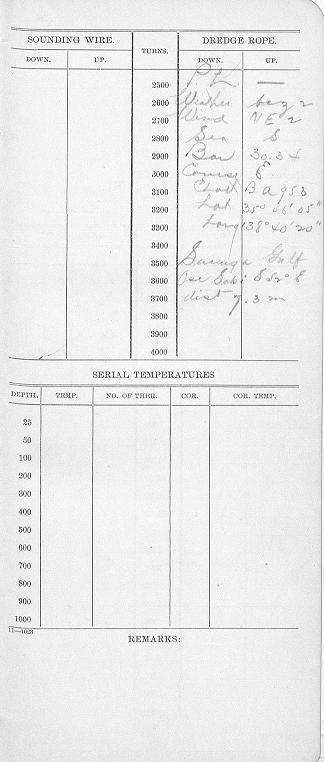 SOUNDING WIRE. TURNS. DREDGE ROPE.
DOWN. UP. DOWN. UP.
2500 P.L. —
2600 Weather bcz 2
2700 Wind NE 2
2800 Sea S
2900 Bar 30.34
3000 Course E
3100 Chart B a 953
3200 Lat 35° 06' 05"
3300 Long 138° 40' 20"
3400
3500 Suruga Gulf
3600 Ose Saki S 52° E
3700 dist 7.3 m
3800
3900
4000
SERIAL TEMPERATURES
DEPTH. TEMP. NO. OF THER. COR. COR. TEMP.
25
50
100
200
300
400
500
600
700
800
900
1000
11—1023
REMARKS: